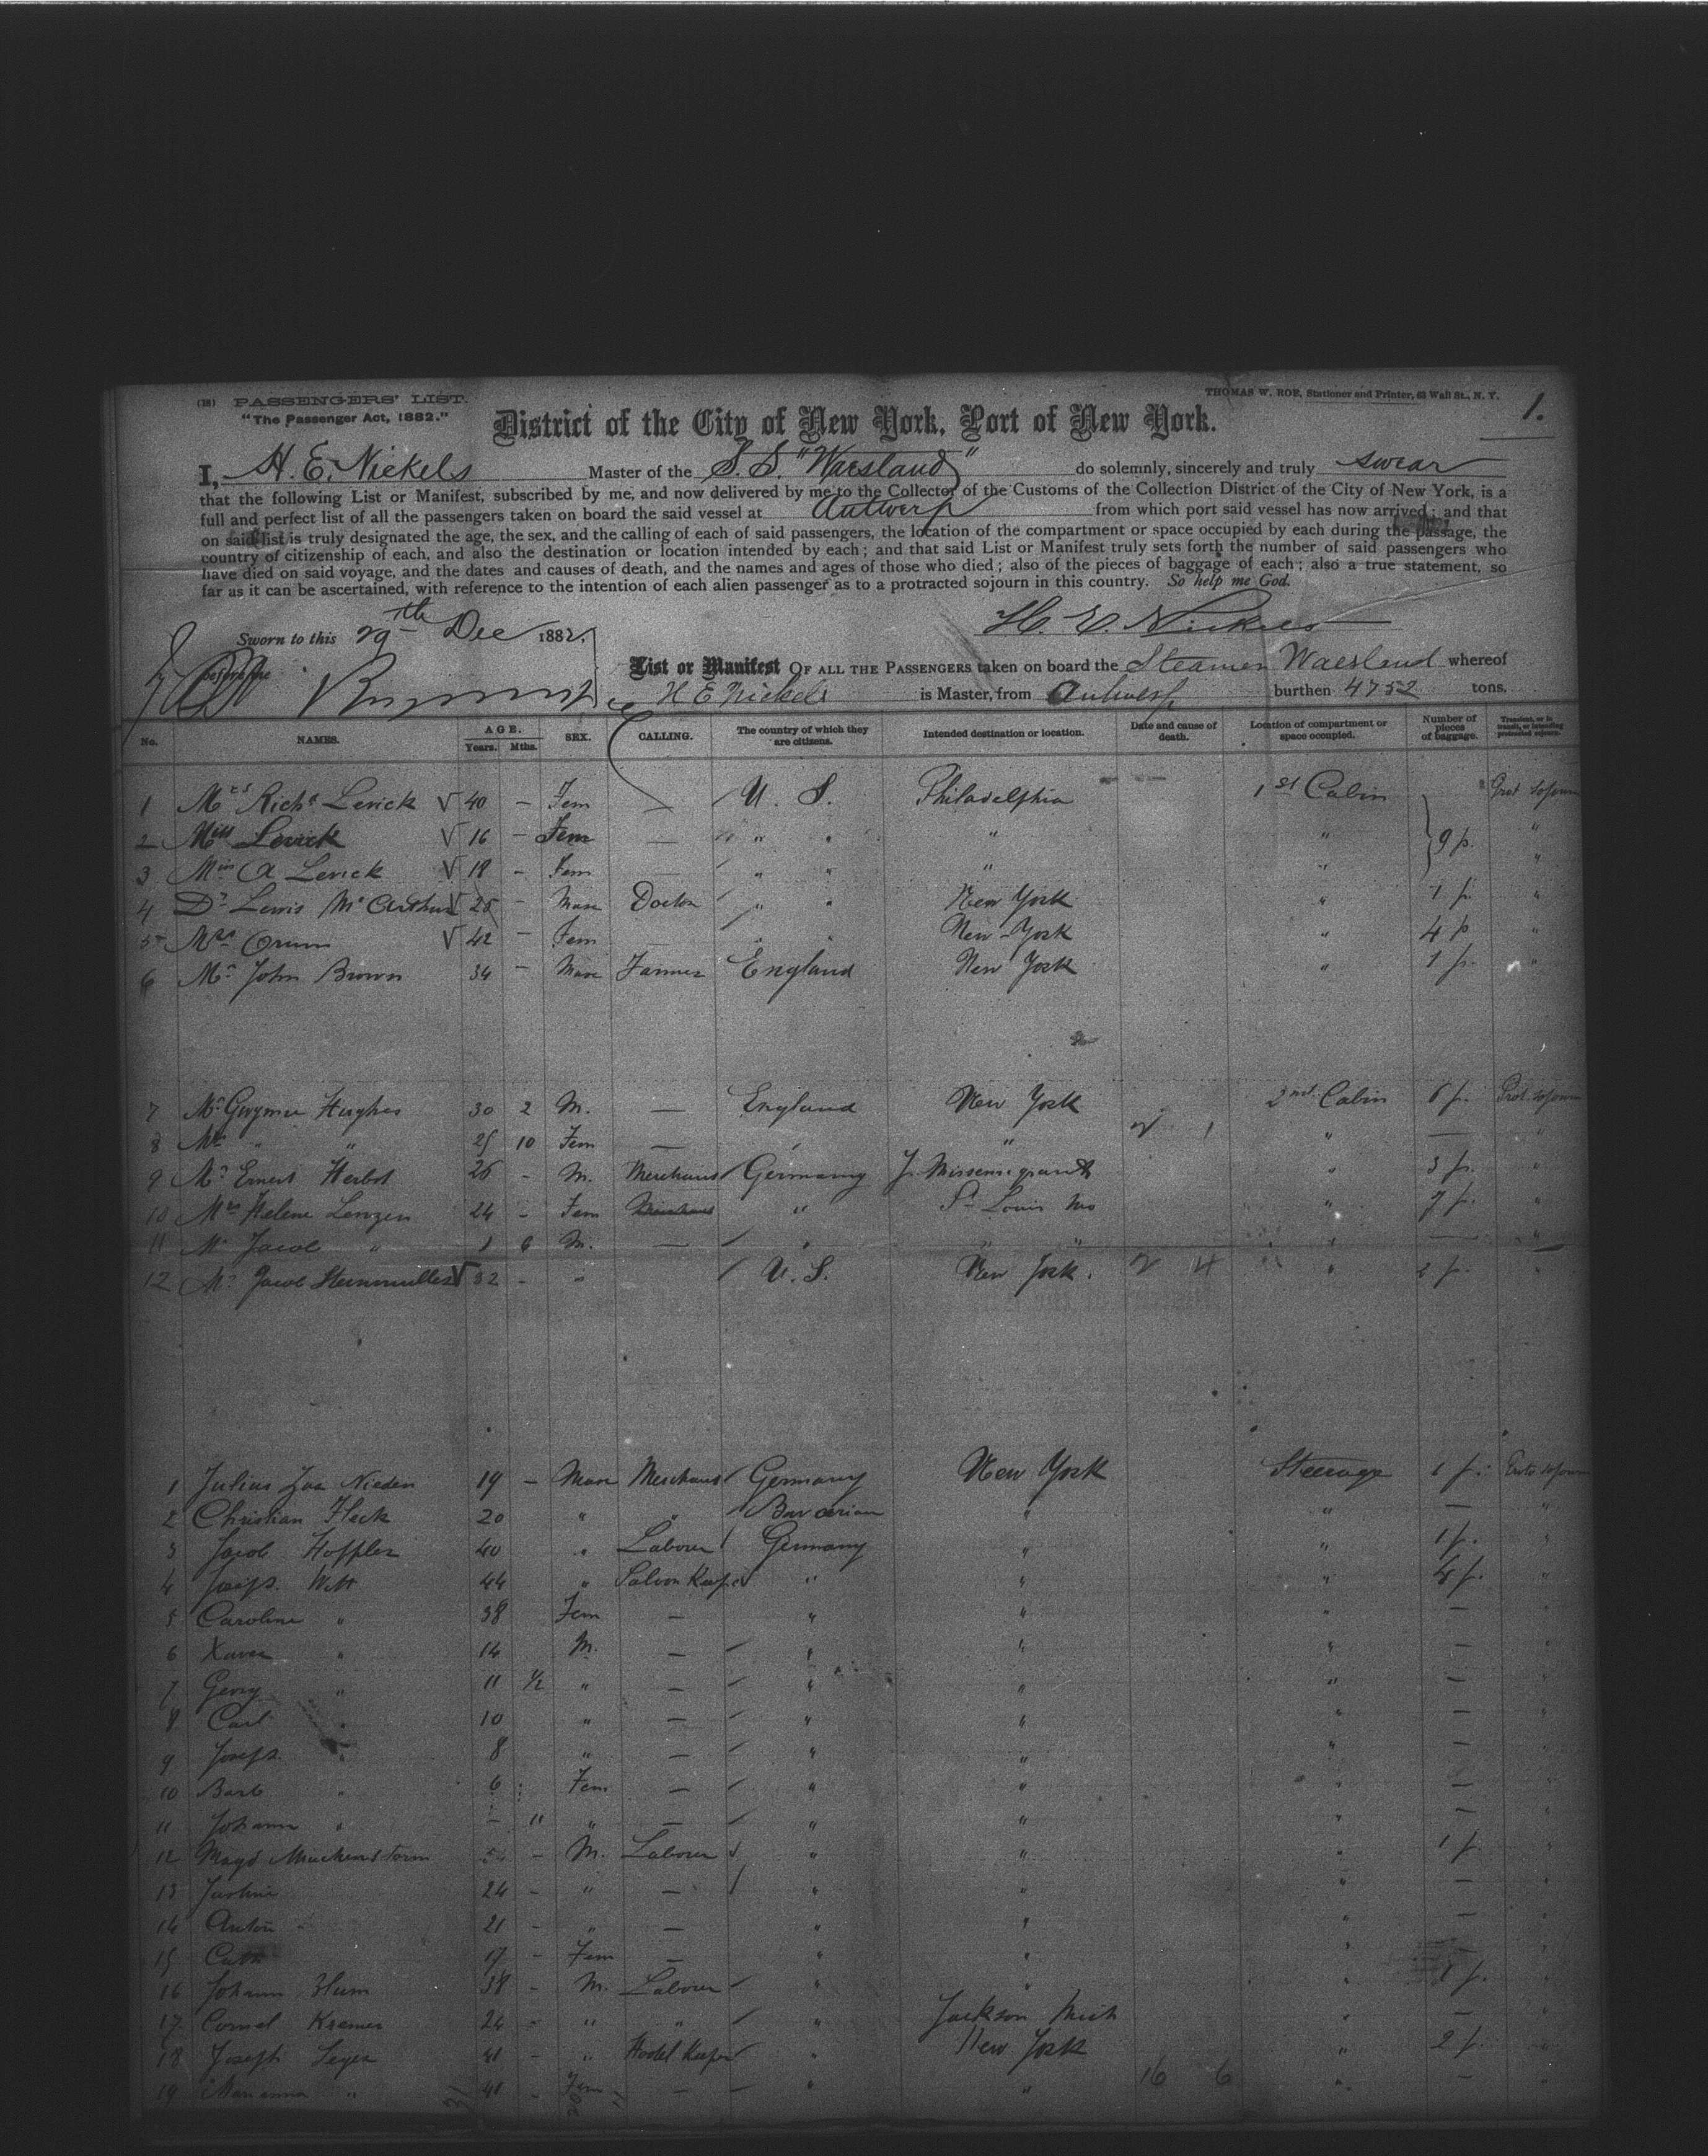 (18) PASSENGERS' LIST. THOMAS W. ROE, Stationer and Printer, 63 Wall St., N. Y. 1.
"The Passenger Act, 1882."
District of the City of New York, Port of New York.
I, H. E. Nickels Master of the S. S. "Waesland" do solemnly, sincerely and truly swear
that the following List or Manifest, subscribed by me, and now delivered by me to the Collector of the Customs of the Collection District of the City of New York, is a
full and perfect list of all the passengers taken on board the said vessel at Antwerp from which port said vessel has now arrived; and that
on said list is truly designated the age, the sex, and the calling of each of said passengers, the location of the compartment or space occupied by each during the passage, the
country of citizenship of each, and also the destination or location intended by each; and that said List or Manifest truly sets forth the number of said passengers who
have died on said voyage, and the dates and causes of death, and the names and ages of those who died; also of the pieces of baggage of each; also a true statement, so
far as it can be ascertained, with reference to the intention of each alien passenger as to a protracted sojourn in this country. So help me God.
Sworn to this 29th Dec 1882. H. E. Nickels
before me
List or Manifest OF ALL THE PASSENGERS taken on board the Steamer Waesland whereof
H E Nickels is Master, from Antwerp burthen 4752 tons.
No. NAMES. AGE. Years. Mths. SEX. CALLING. The country of which they are citizens. Intended destination or location. Date and cause of death. Location of compartment or space occupied. Number of pieces of baggage. Transient, or in transit, or intending protracted sojourn.
1 Mrs Richd Levick √ 40 – Fem — U. S. Philadelphia 1st Cabin Prot sojourn
2 Miss Levick √ 16 – Fem — " " " " 9 p. "
3 Miss A Levick √ 18 – Fem — " " " " "
4 Dr Lewis McArthur √ 25 – Doctor " " New York " 1 p. "
5 Mrs Orum √ 42 – Fem — " " New York " 4 p "
6 Mr John Brown 34 – Farmer England New York " 1 p. "
7 Mr Hughes 30 2 M. — England New York 2nd Cabin Prot sojourn
8 Mrs " " 25 10 Fem — " " — "
9 Mr Ernest Herbst 26 - M. Merchant Germany " 3 p. "
10 Mrs Helene Lenzen 24 - Fem " St Louis Mo " 7 p. "
11 Mr Jacob " 1 6 M. — " " " " — "
12 Mr Jacob Steinmuller √ 32 - " U. S. New York. " "
1 Julius Nieden 19 – Merchant Germany New York Steerage 1 p.
2 Christian Fleck 20 " " Bavarian " " — "
3 Jacob Hoffler 40 " Labourer Germany " " 1 p. "
4 Witt 44 " Saloon Keeper " " " "
5 Caroline " 38 Fem — " " " — "
6 Xaver " 14 M. — " " " — "
7 Georg " 11 ½ " — " " " — "
8 Carl " 10 " — " " " — "
9 Joseph " 8 " — " " " — "
10 Barb " 6 Fem — " " " — "
11 Johann " - 11 " — " " " — "
12 - M. Labourer " " " 1 p. "
13 24 - " — " " " — "
14 Anton " 21 - " — " " " — "
15 Cath 17 - Fem — " " " — "
16 Johann 38 - M. Labourer " " " 1 p. "
17 Kramer 24 - " " " Jackson Mich " — "
18 Joseph 41 - " Hotel Keeper " New York " 2 p. "
19 Marianna " 41 - Fem — " " 16 6 " — "